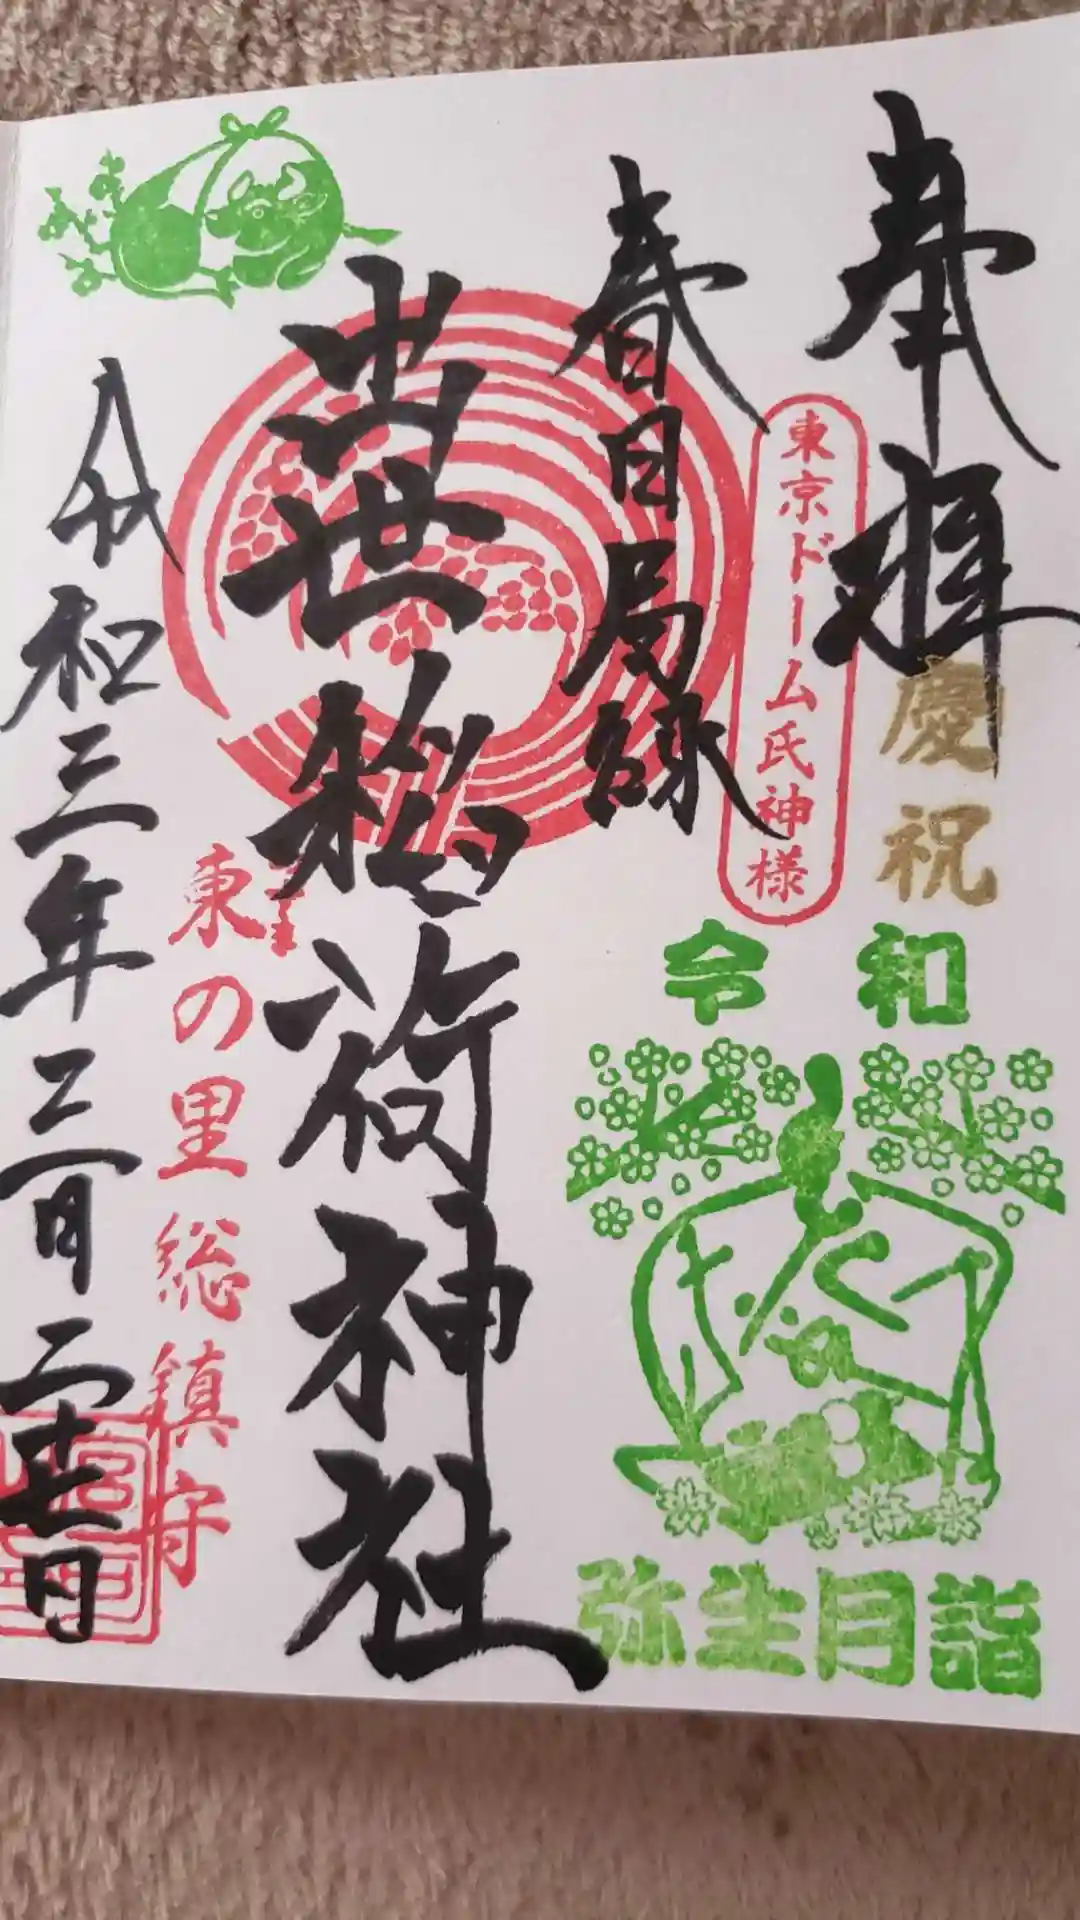 奉拝
慶祝
東京ドーム氏神様
春日局縁
出世稲荷神社
東の里総鎮守
令和三年三月二十七日
令和
弥生月詣